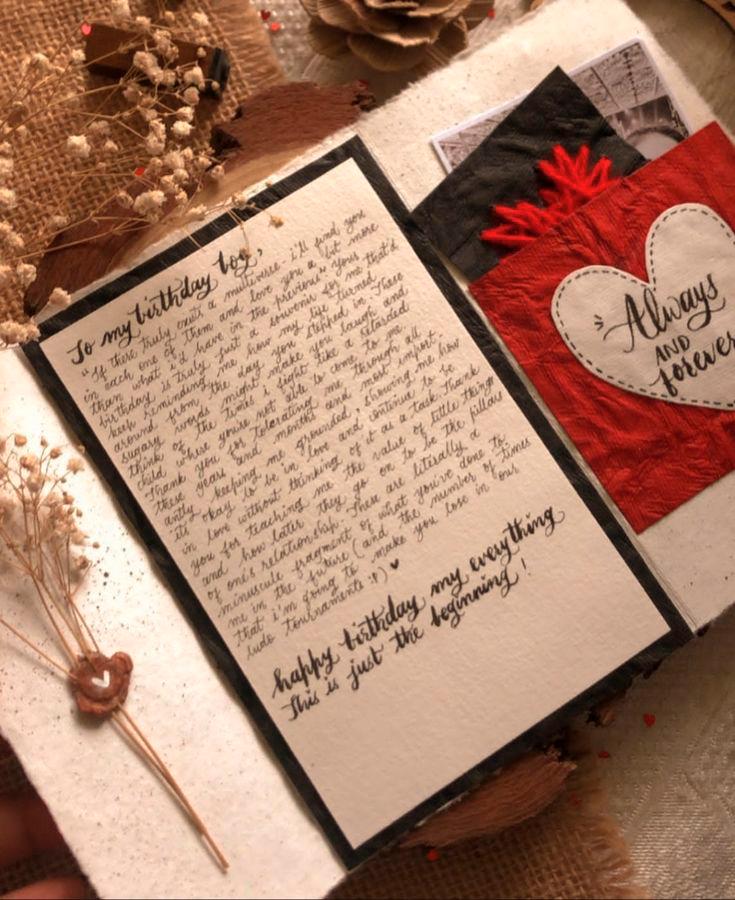 To my birthday boy,
"If there truly exist a multiverse. i'll find you
in each one of them and love you a bit more
than what i'd have in the previous". yours
birthday is truly just a souvenir for me that'd
keep reminding me how my life turned
around from the day you stepped in. These
sugary words might make you laugh and
think of the times i fight like a retarded
child where you're not able to come to me.
Thank you for tolerating me through all
these years and months and most import
antly keeping me grounded, showing me how
it's okay to be in love and continue to be
in love without thinking of it as a task. thank
you for teaching me the value of little things
and how later they go on to be the pillars
of one's relationship. These are literally a
minuscule fragment of what you've done to
me in the future (and the number of times
that i'm going to make you lose in our
ludo tournaments :p) ♥
happy birthday my everything
This is just the beginning!
Always
AND
forever